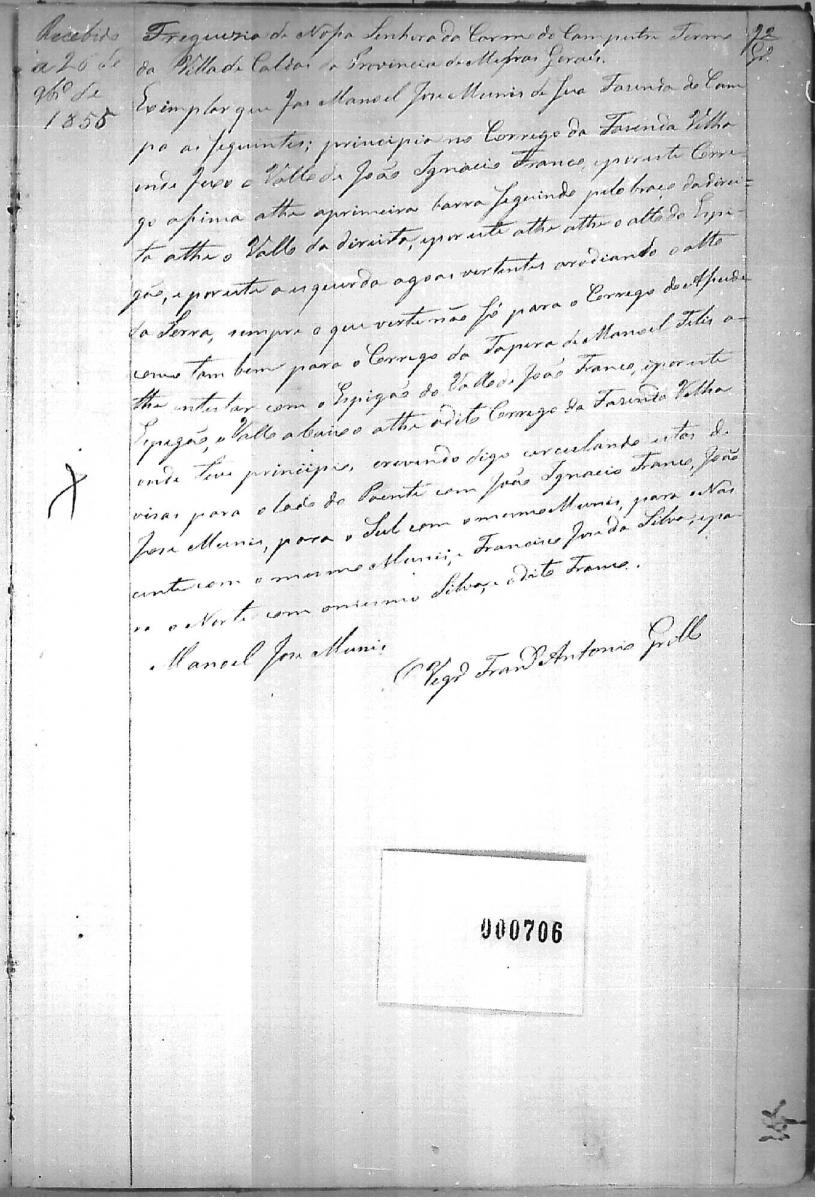 Recebido
a 26 de
9bro de
1855
22
Freguesia de Nossa Senhora do Carmo do Campestre Termo
da Villa de Caldas da Provincia de Minas Geraes.
Exemplar que fas Manoel Jose Munis de sua Fazenda do Cam
po as seguintes; principia no Corrego da Fazenda Velha
onde o Vallo de João Ignacio Franco, e por este Corre
go assima athe a primeira barra seguindo pelo braço da direi=
ta athe o Vallo da direita, e por este athe athe o alto do Espi=
gão, e por este a esquerda agoas vertentes arodiando o alto
da Serra, sempre o que verte não só para o Corrego do
como tam bem para o Corrego da Tapera de Manoel Felis a=
the entestar com o Espigão do Vallo de João Franco, e por este
Espigão, e Vallo abaixo athe o dito Corrego da Fazenda Velha
onde teve principio, crevendo digo circulando estas de
visas para o lado do Poente com João Ignacio Franco, João
Jose Munis, para o Sul com o mesmo Munis, para o Nas
cente com o mesmo Munis, e Francisco Jose da Silva, e pa
ra o Norte com o mesmo Silva, e o dito Franco.
Manoel Jose Munis
O Vigro Franco Antonio Grillo
000706